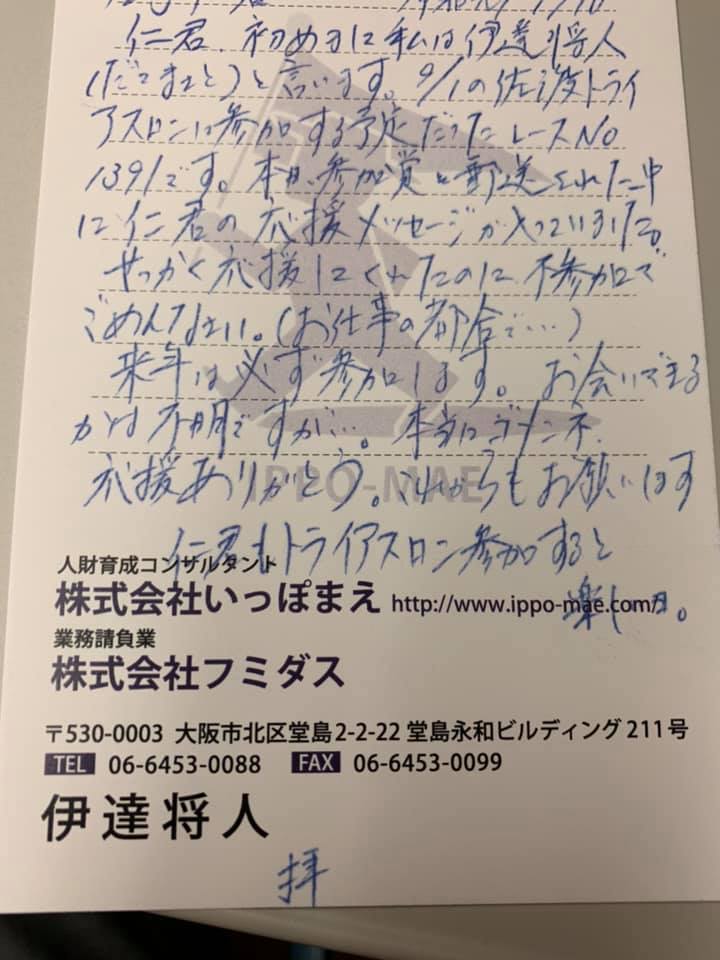 仁君、初めまに私は伊達将人
(だてまさと)と言います。9/1の佐渡トライ
アスロンに参加する予定だったレースNo
1391です。本日、参加賞と郵送された中
に仁君の応援メッセージが入っていました。
せっかく応援してくれたのに不参加で
ごめんなさい。(お仕事の都合で…)
来年は必ず参加します。お会いできる
かは不明ですが…。本当にゴメンネ、
応援ありがとう。これからもお願いします
IPPO-MAE
仁君もトライアスロン参加すると
楽しいヨ。
人財育成コンサルタント
株式会社いっぽまえ http://www.ippo-mae.com/
業務請負業
株式会社フミダス
〒530-0003 大阪市北区堂島2-2-22 堂島永和ビルディング211号
TEL 06-6453-0088 FAX 06-6453-0099
伊達将人
拝